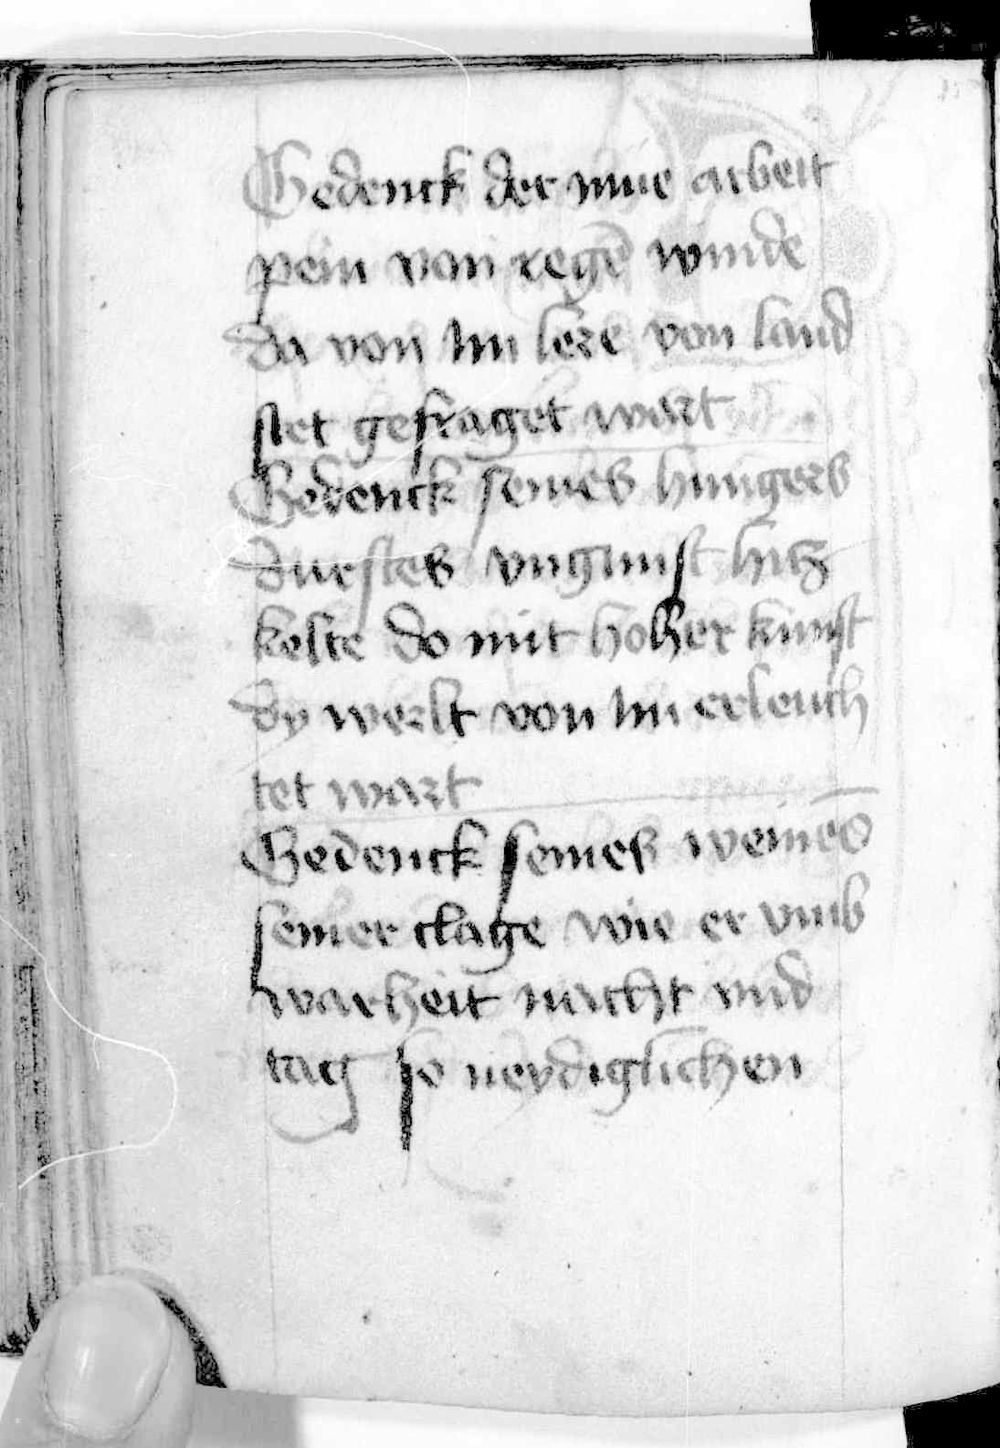 Gedenck der mue arbeit
pein von regē winde
da von im lere von land
stet gefraget wart
Gedenck seines hungers
durstes vngunst hitz
kelte do mit hoher kunst
dy werlt von im erleuch
tet wart
Gedenck seines weinēs
seiner clage wie er vmb
warheit nacht vnd
tag so neydiglichen